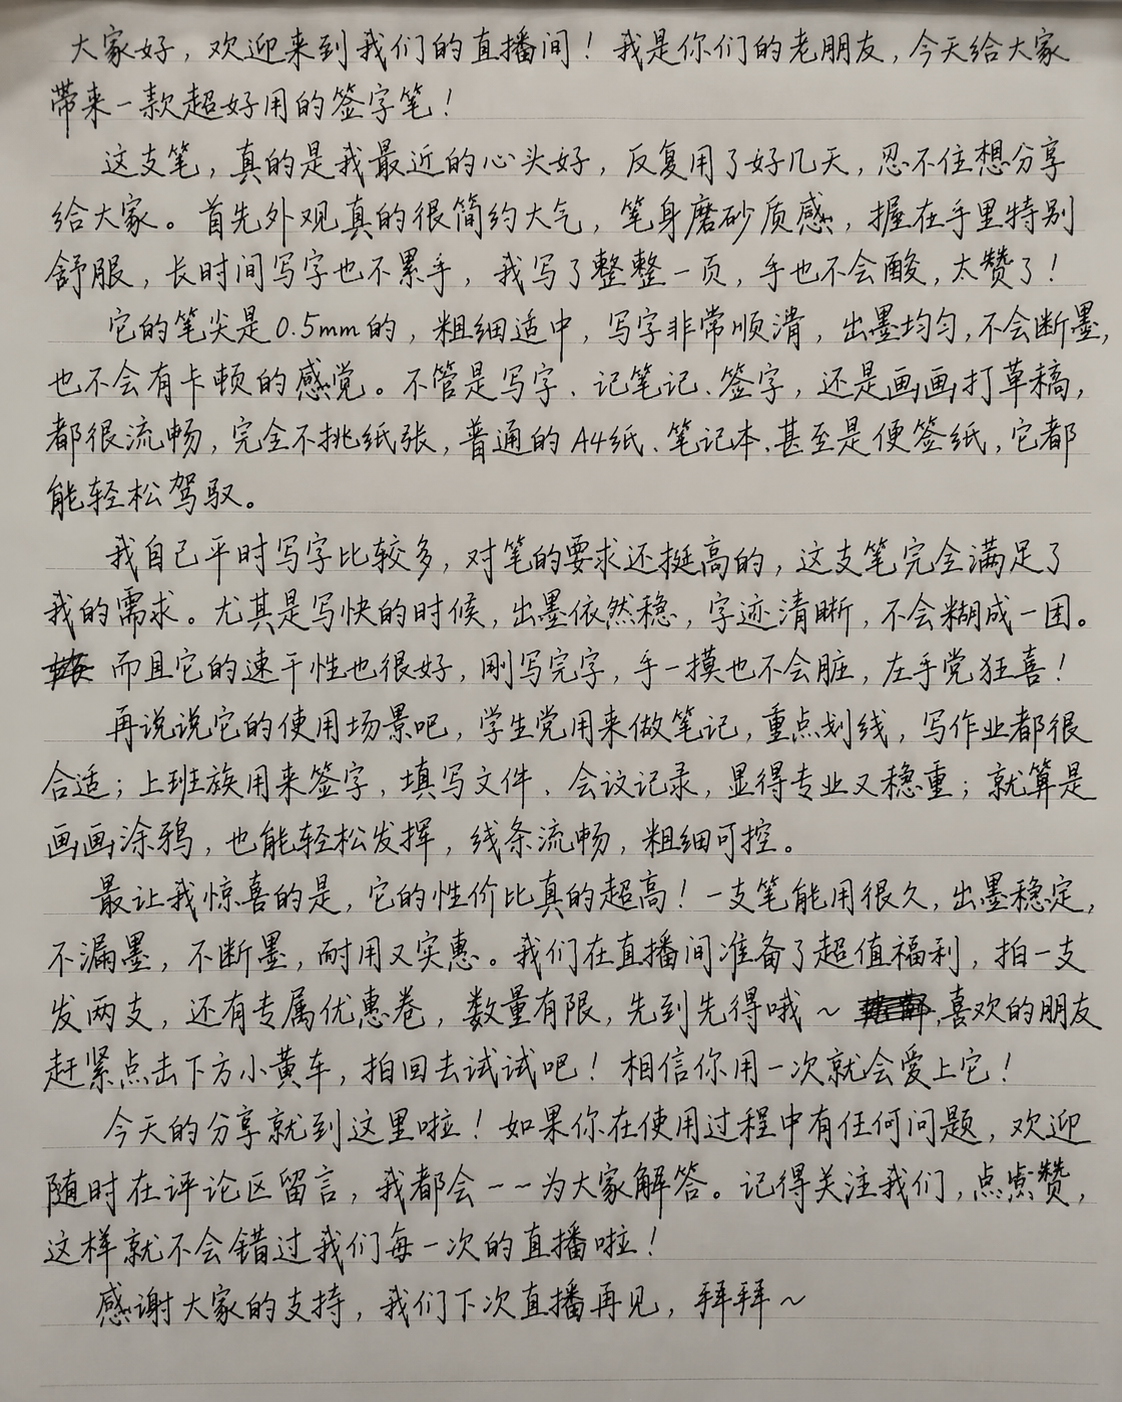 大家好，欢迎来到我们的直播间！我是你们的老朋友，今天给大家
带来一款超好用的签字笔！
这支笔，真的是我最近的心头好，反复用了好几天，忍不住想分享
给大家。首先外观真的很简约大气，笔身磨砂质感，握在手里特别
舒服，长时间写字也不累手，我写了整整一页，手也不会酸，太赞了！
它的笔尖是0.5mm的，粗细适中，写字非常顺滑，出墨均匀，不会断墨，
也不会有卡顿的感觉。不管是写字、记笔记、签字，还是画画打草稿，
都很流畅，完全不挑纸张，普通的A4纸、笔记本、甚至是便签纸，它都
能轻松驾驭。
我自己平时写字比较多，对笔的要求还挺高的，这支笔完全满足了
我的需求。尤其是写快的时候，出墨依然稳，字迹清晰，不会糊成一团。
而且它的速干性也很好，刚写完字，手一摸也不会脏，左手党狂喜！
再说说它的使用场景吧，学生党用来做笔记，重点划线，写作业都很
合适；上班族用来签字，填写文件、会议记录，显得专业又稳重；就算是
画画涂鸦，也能轻松发挥，线条流畅，粗细可控。
最让我惊喜的是，它的性价比真的超高！一支笔能用很久，出墨稳定，
不漏墨，不断墨，耐用又实惠。我们在直播间准备了超值福利，拍一支
发两支，还有专属优惠卷，数量有限，先到先得哦～，喜欢的朋友
赶紧点击下方小黄车，拍回去试试吧！相信你用一次就会爱上它！
今天的分享就到这里啦！如果你在使用过程中有任何问题，欢迎
随时在评论区留言，我都会一一为大家解答。记得关注我们，点点赞，
这样就不会错过我们每一次的直播啦！
感谢大家的支持，我们下次直播再见，拜拜～